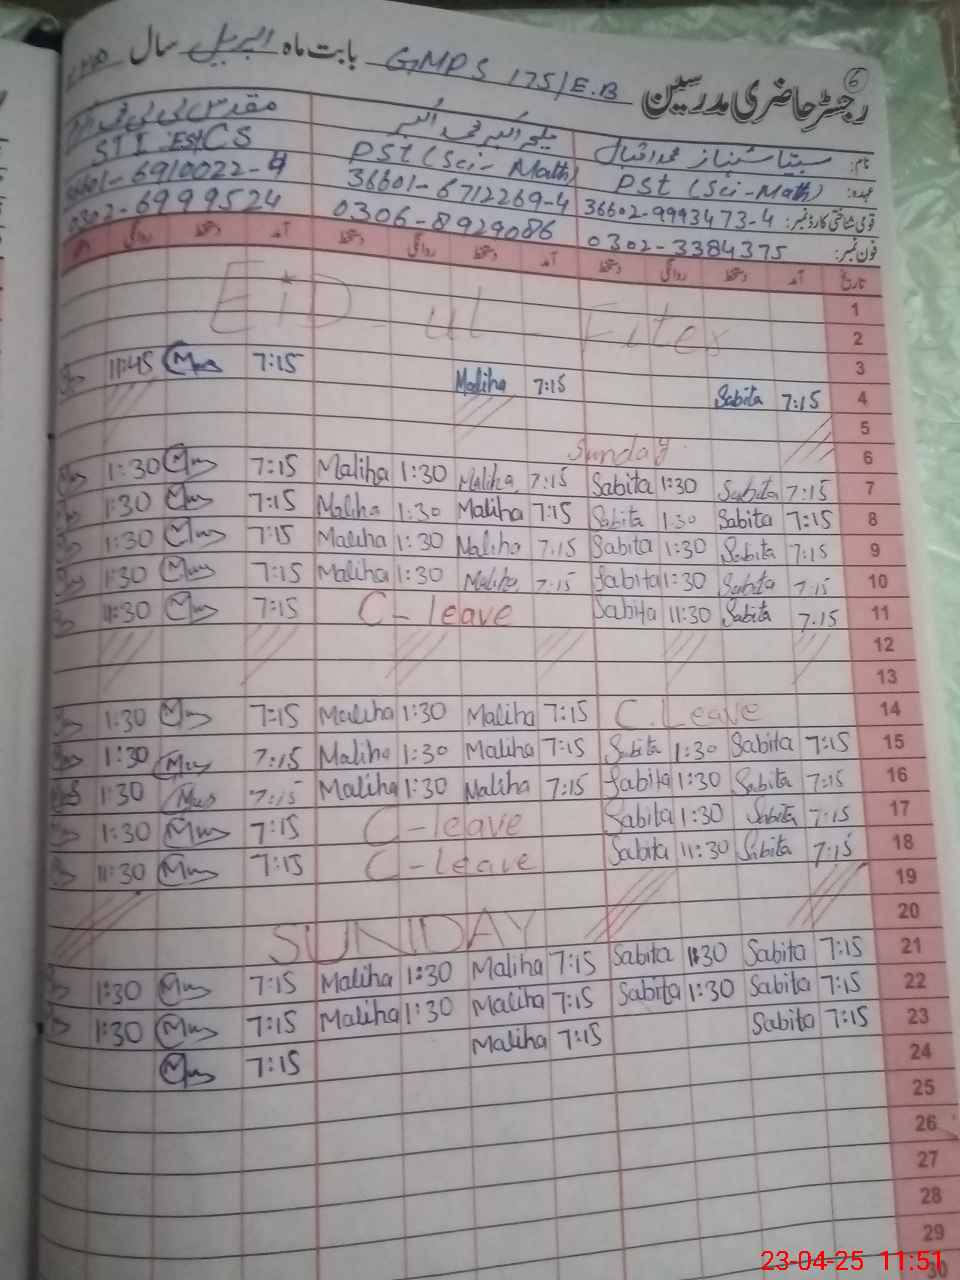 رجسٹر حاضری مدرسین GMPS 175/E.B بابت ماہ اپریل سال
6
نام: سبیتا شہناز محمد اقبال ملیحہ اکبر محمد اکبر
عہدہ: PST (Sci-Math) PST (Sci-Math) STI EstCS
قومی شناختی کارڈ نمبر: 36602-9993473-4 36601-6712269-4 36601-6910022-4
فون نمبر: 0302-3384375 0306-8929086 0302-6999524
تاریخ آمد دستخط روانگی دستخط آمد دستخط روانگی دستخط آمد دستخط روانگی
1
EiD ul - Fiter
2
3
4 7:15 Sabita 7:15 Maliha 7:15 11:45
5
6 Sunday
7 7:15 Sabita 1:30 Sabita 7:15 Maliha 1:30 Maliha 7:15 1:30
8 7:15 Sabita 1:30 Sabita 7:15 Maliha 1:30 Maliha 7:15 1:30
9 7:15 Sabita 1:30 Sabita 7:15 Maliha 1:30 Maliha 7:15 1:30
10 7:15 Sabita 1:30 Sabita 7:15 Maliha 1:30 Maliha 7:15 1:30
11 7:15 Sabita 11:30 Sabita C-leave 7:15 11:30
12
13
14 C.Leave 7:15 Maliha 1:30 Maliha 7:15 1:30
15 7:15 Sabita 1:30 Sabita 7:15 Maliha 1:30 Maliha 7:15 1:30
16 7:15 Sabita 1:30 Sabita 7:15 Maliha 1:30 Maliha 7:15 1:30
17 7:15 Sabita 1:30 Sabita C-leave 7:15 1:30
18 7:15 Sabita 11:30 Sabita C-leave 7:15 11:30
19
20 SUNDAY
21 7:15 Sabita 1:30 Sabita 7:15 Maliha 1:30 Maliha 7:15 1:30
22 7:15 Sabita 1:30 Sabita 7:15 Maliha 1:30 Maliha 7:15 1:30
23 7:15 Sabita 7:15 Maliha 7:15
24
25
26
27
28
29
30
23-04-25 11:51